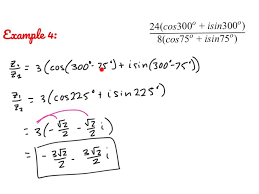 Example 4:
24(cos300° + isin300°)
8(cos75° + isin75°)
z₁/z₂ = 3(cos(300°-75°) + isin(300°-75°)
z₁/z₂ = 3(cos225° + isin225°)
= 3(-√2/2 - √2/2 i)
= -3√2/2 - 3√2/2 i